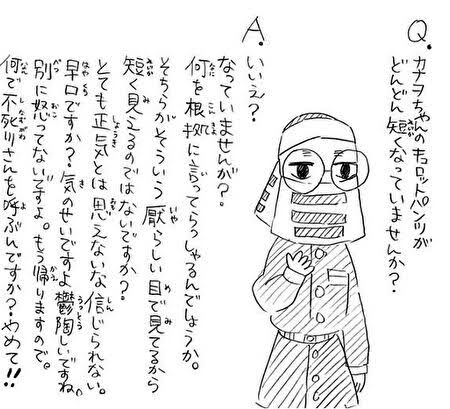 Q. カナヲちゃんのキュロットパンツが
どんどん短くなっていませんか？
A. いいえ？
なっていませんが？
何を根拠に言ってらっしゃるんでしょうか。
そちらがそういう厭らしい目で見てるから
短く見えるのではないですか？
とても正気とは思えないな信じられない。
早口ですか？気のせいですよ鬱陶しいですね。
別に怒ってないですよ。もう帰りますので。
何で不死川さんを呼ぶんですか？やめて!!